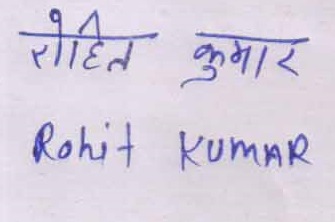 रोहित कुमार
Rohit KUMAR